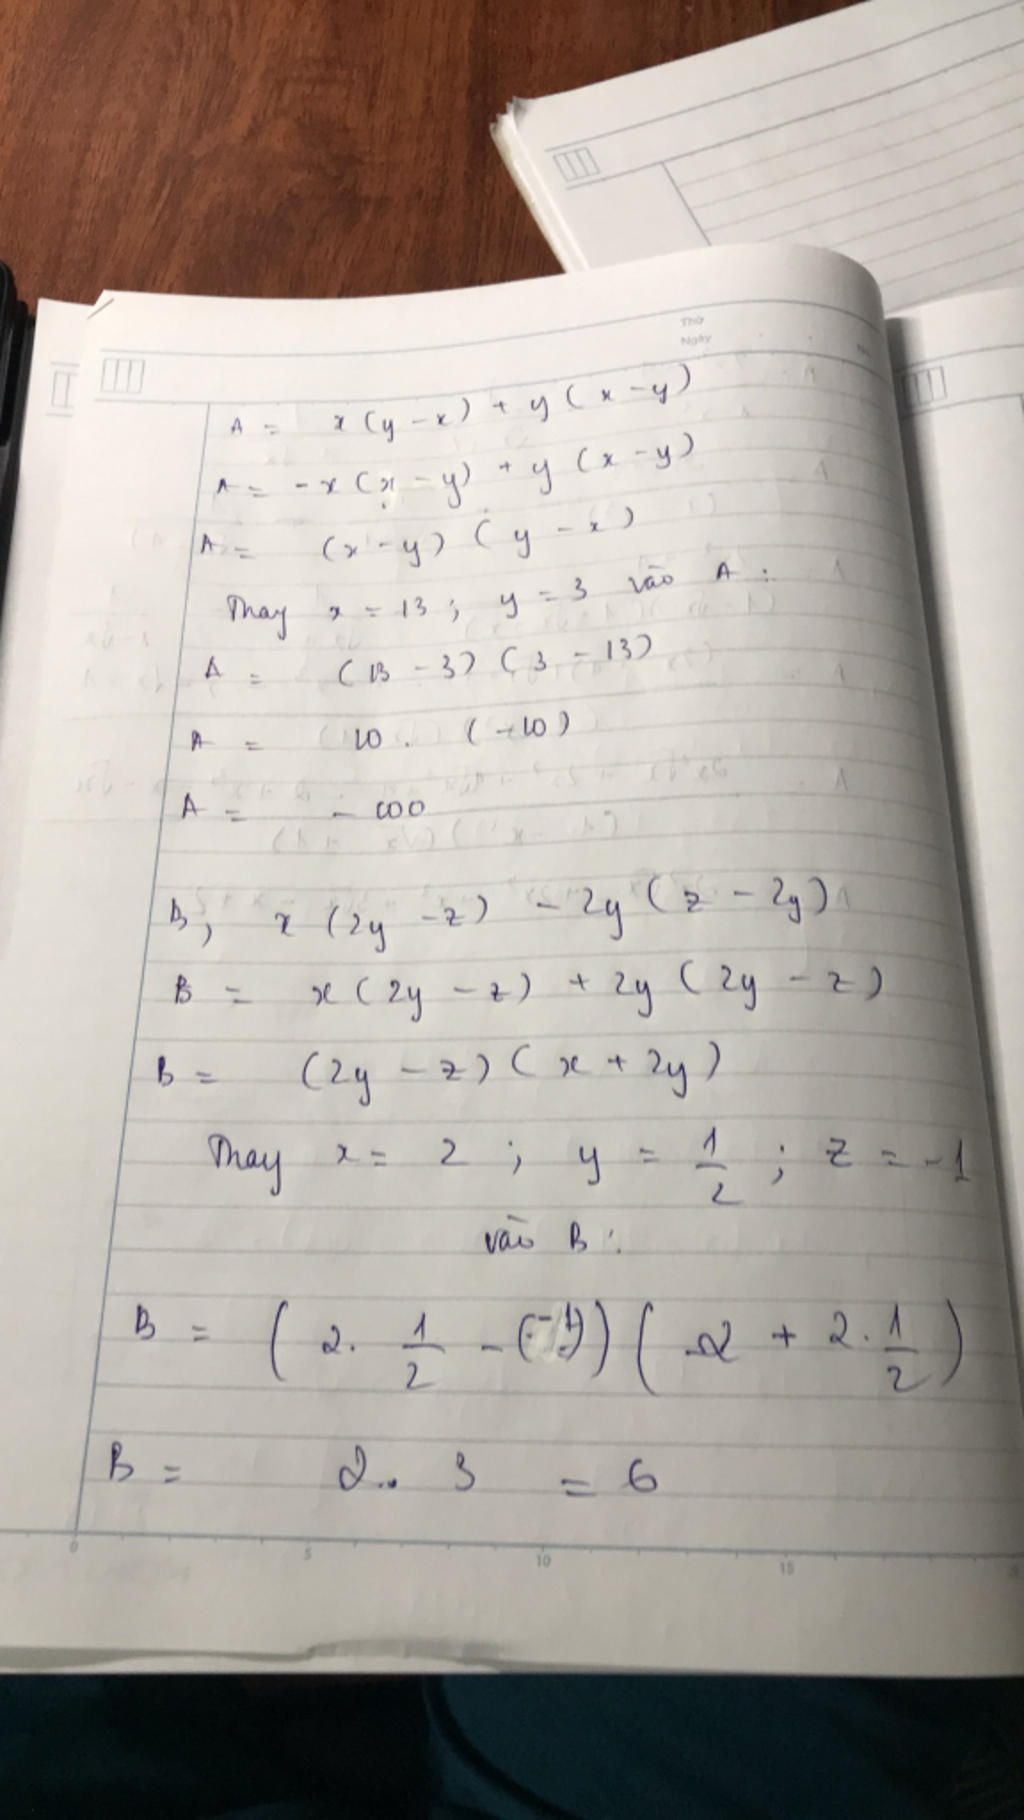 Thứ
Ngày
A = x(y - x) + y(x - y)
A = -x(x - y) + y(x - y)
A = (x - y)(y - x)
Thay x = 13; y = 3 vào A:
A = (13 - 3)(3 - 13)
A = 10 . (-10)
A = - 100
B, x(2y - z) - 2y(z - 2y)
B = x(2y - z) + 2y(2y - z)
B = (2y - z)(x + 2y)
Thay x = 2 ; y = 1/2 ; z = -1
vào B:
B = (2. 1/2 - (-1))(2 + 2. 1/2)
B = 2.. 3 = 6
0 5 10 15